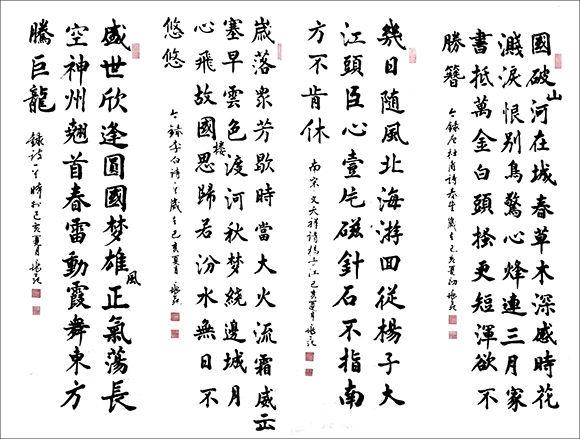 國破山河在城春草木深感時花
濺淚恨别鳥驚心烽連三月家
書抵萬金白頭搔更短渾欲不
勝簪
今錄唐杜甫詩春望歲在己亥夏初
幾日隨風北海游回從楊子大
江頭臣心壹片磁針石不指南
方不肯休
南宋文天祥詩揚子江己亥夏月
歲落衆芳歇時當大火流霜威出
塞早雲色渡河秋梦繞邊城月
心飛故國楼思歸若汾水無日不
悠悠
今錄李白詩一首歲在己亥夏月
盛世欣逢圓國梦雄風正氣蕩長
空神州翹首春雷動霞舞東方
騰巨龍
錄詩一首時於己亥夏月